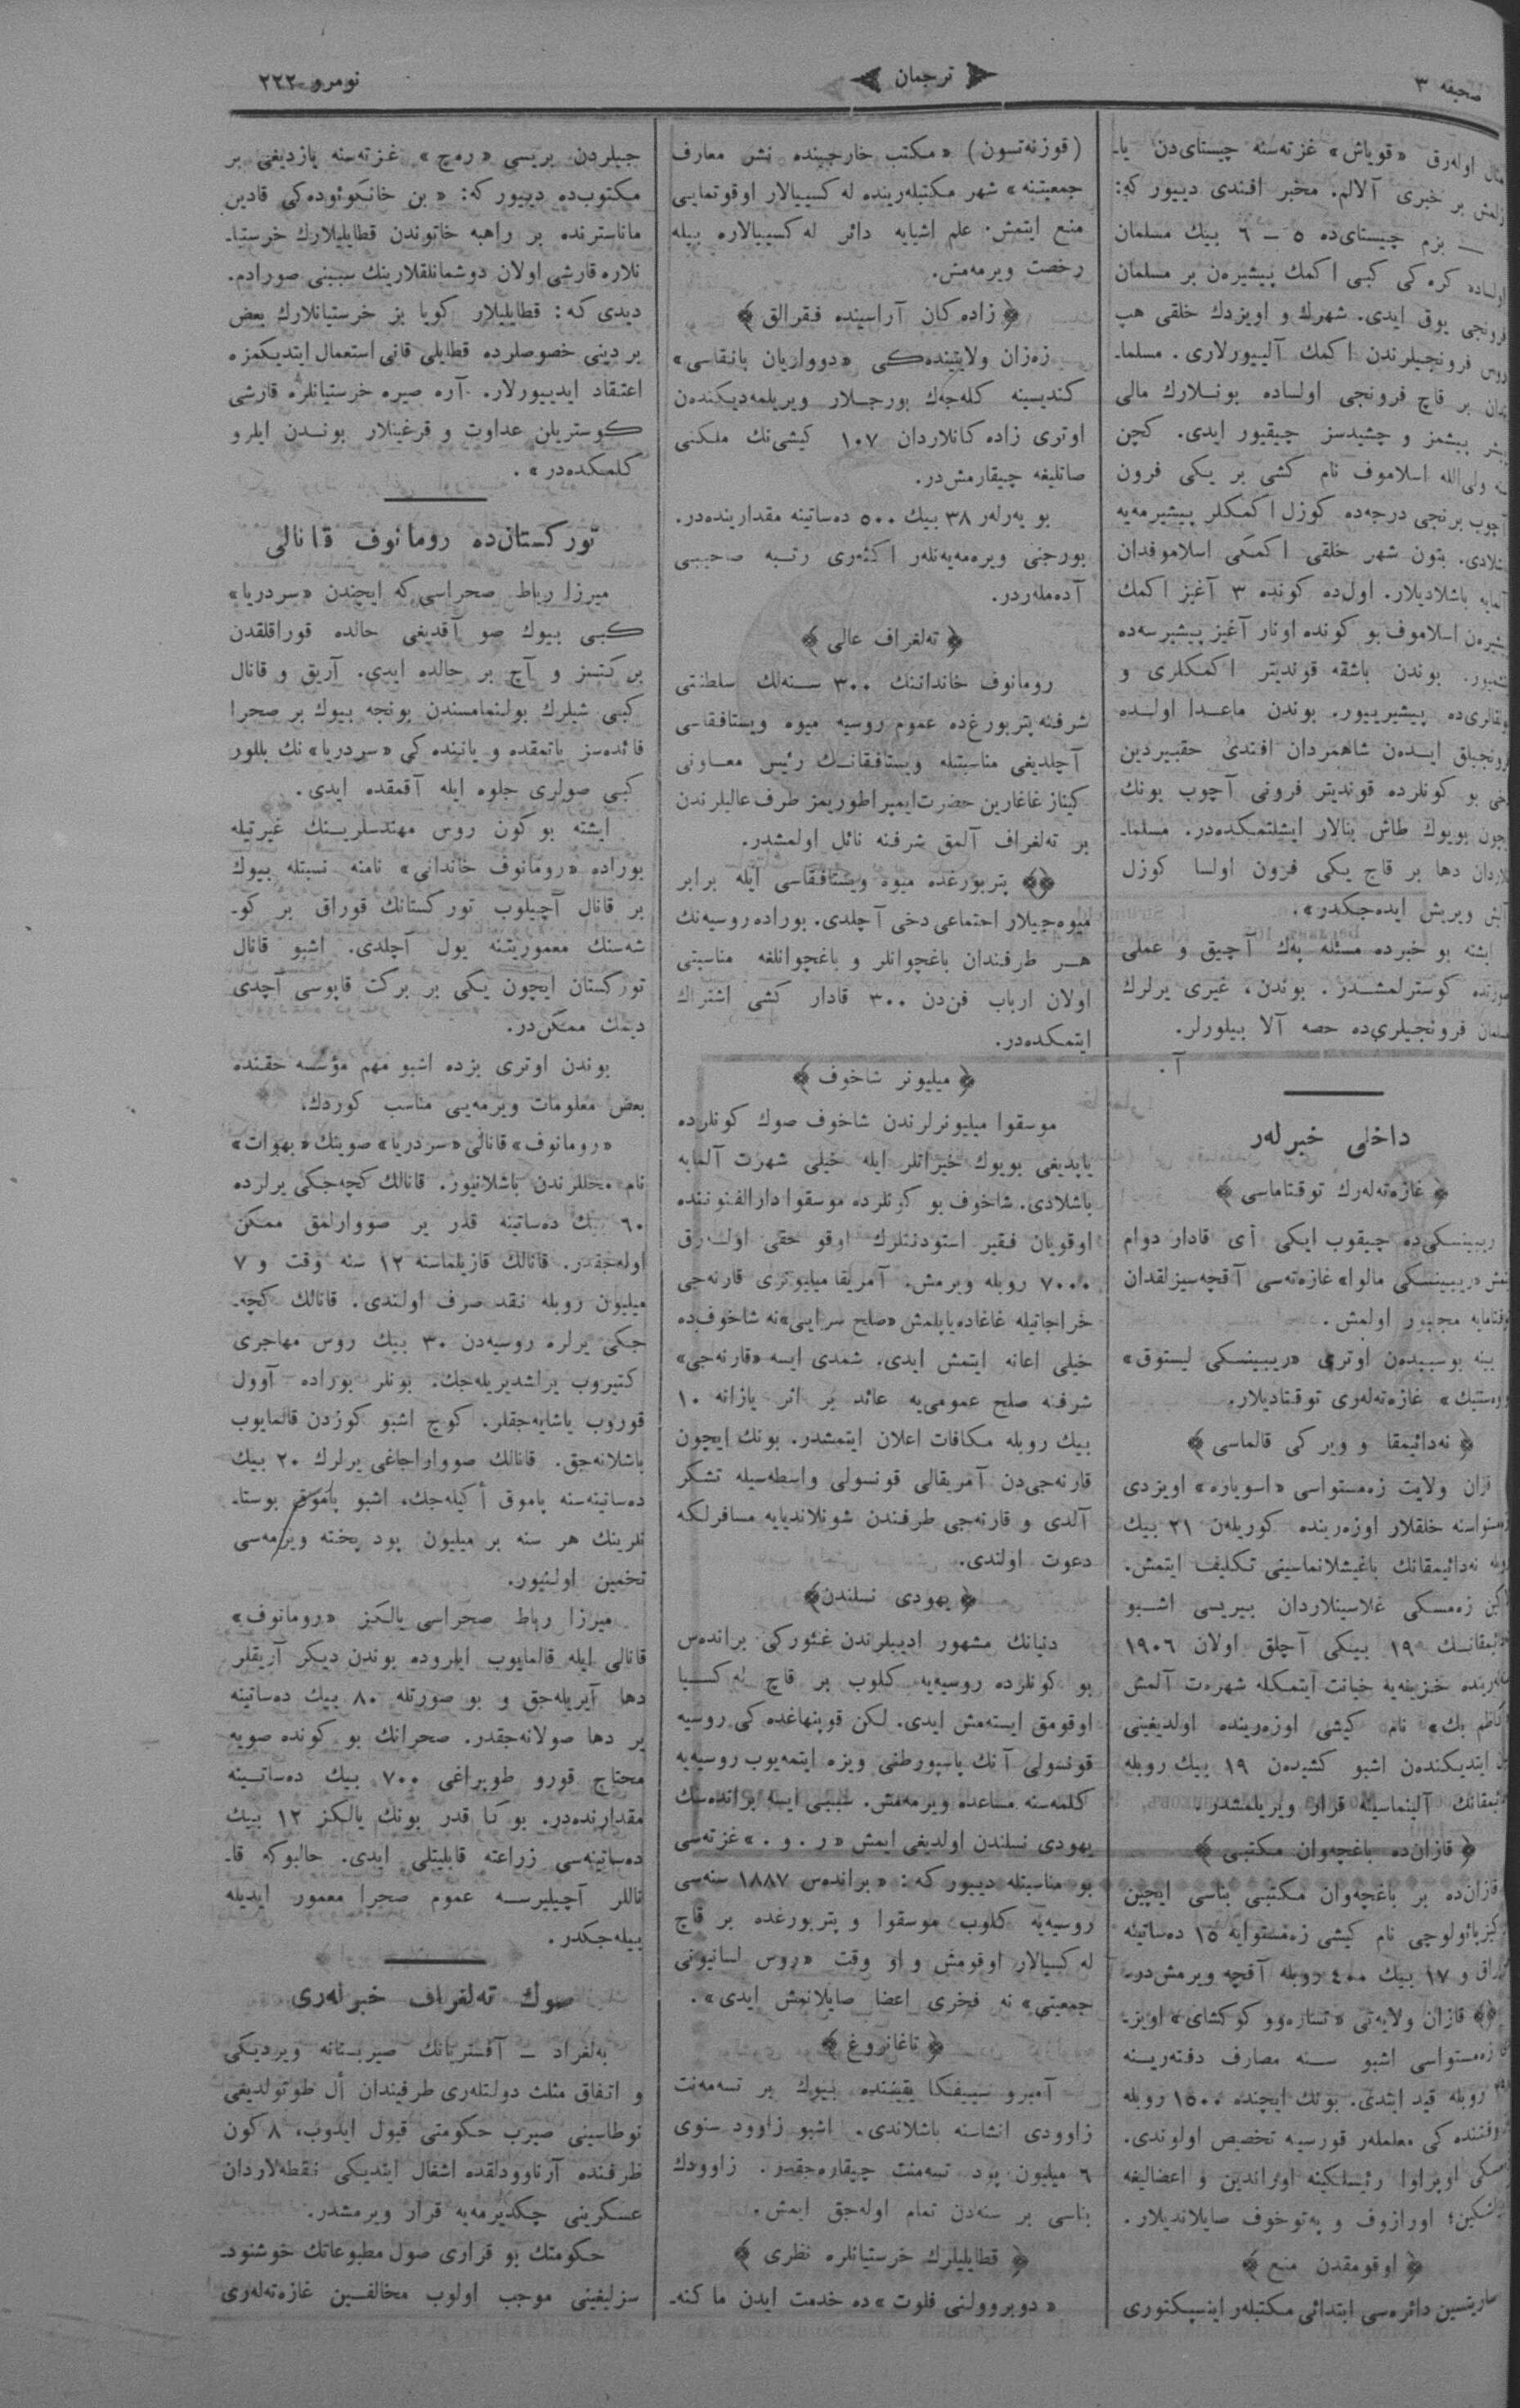 صحیفه ۳
ترجمان
نومرو ۲۲۲
مثال اوله‌رق «قویاش» غزته‌سنه چیستای‌دن یا-
زلمش بر خبری آلالم. مخبر افندی دییور که:
— بزم چیستای‌ده ٥ – ٦ بیك مسلمان
اولساده کره کی کبی اکمك پیشیره‌ن بر مسلمان
فرونجی یوق ایدی. شهرك و اویزدك خلقی هپ
روس فرونجیلرندن اکمك آلییورلاری. مسلما-
ندان بر قاچ فرونجی اولساده بونلارك مالی
پیشمز و چشیدسز چیقیور ایدی. کچن
سنه ولی‌الله اسلاموف نام کشی بر یکی فرون
آچوب برنجی درجه‌ده کوزل اکمکلر پیشیرمه‌یه
باشلادی. بتون شهر خلقی اکمکی اسلاموفدان
آلمایه باشلادیلار. اول‌ده کونده ۳ آغیز اکمك
پیشیره‌ن اسلاموف بو کونده اونار آغیز پیشیرسه‌ده
بوندن باشقه قوندیتر اکمکلری و
پیشیرییور. بوندن ماعدا اولده
فرونجیلق ایده‌ن شاهمردان افندی حقییردین
دخی بو کونلرده قوندیتر فرونی آچوب بونك
ایچون بویوك طاش بنالار ایشلتمکده‌در. مسلما-
نلاردان دها بر قاچ یکی فرون اولسا کوزل
آلش ویریش ایده‌جکدر».
ایشته بو خبرده مسئله پك آچیق و عملی
صورتده کوسترلمشدر. بوندن، غیری یرلرك
مسلمان فرونجیلری‌ده حصه آلا بیلورلر.
آ.
داخلی خبرلەر
﴿ غازه‌ته‌لەرك توقتاماسی ﴾
ریبینسکی‌ده چیقوب ایکی آی قادار دوام
ایتمش «ریبینسکی مالوا» غازه‌ته‌سی آقچه‌سیزلقدان
توقتامایه مجبور اولمش.
ینه بوسببدن اوتری «ریبینسکی لیستوق»
غازه‌ته‌لەری توقتادیلار.
﴿ نەدائیمقا و ویرکی قالماسی ﴾
قزان ولایت زەمستواسی «اسویاژه» اویزدی
زەمستواسنه خلقلار اوزەرینده کوریلەن ۲۱ بیك
روبله نەدائیمقانك باغیشلانماسینی تکلیف ایتمش.
لکین زەمسکی غلاسینلاردان بیریسی اشبو
نەدائیمقانك ۱۹ بیکی آچلق اولان ۱۹۰٦
سنه‌لەرینده خزینه‌یه خیانت ایتمکله شهرت آلمش
کاظم بك» نام کیشی اوزەرینده اولدیغینی
بیان ایتدیکندەن اشبو کشیدەن ۱۹ بیك روبله
نەدائیمقانك آلینماسینه قرار ویریلمشدر.
﴿ قازان‌ده باغچەوان مکتبی ﴾
قازان‌ده بر باغچەوان مکتبی بناسی ایچین
نام کیشی زەمستوایه ۱٥ دەساتینه
توپراق و ۱۷ بیك ٤۰۰ روبله آقچه ویرمش‌در.
﴿﴾ قازان ولایەتی «تسارەوو کوکشای» اویز-
زەمستواسی اشبو سنه مصارف دفتەرینه
روبله قید ایتدی. بونك ایچنده ۱٥۰۰ روبله
کی معلملەر قورسیه تخصیص اولوندی.
زەمسکی اوپراوا رئیسلکینه اوراندین و اعضالیغه
اورازوف و پەتوخوف صایلاندیلار.
﴿ اوقومقدن منع ﴾
ساریتسین دائرەسی ابتدائی مکتبلەر اینسپکتوری
(قوزنەتسون) «مکتب خارجینده نشر معارف
جمعیتنه» شهر مکتبلەرینده لەکسییالار اوقوتمایی
منع ایتمش. علم اشیایه دائر لەکسییالاره بیله
رخصت ویرمەمش.
﴿ زادەکان آراسینده فقرالق ﴾
زەزان ولایتینده‌کی «دوواریان بانقاسی»
کندیسینه کلەجەك بورجلار ویریلمەدیکندەن
اوتری زادەکانلاردان ۱۰۷ کیشی‌نك ملکنی
صاتلیغه چیقارمش‌در.
بو یەرلەر ۳۸ بیك ٥۰۰ دەساتینه مقدارینده‌در.
بورجنی ویرەمەیەنلەر اکثەری رتبه صاحبی
آدەملەردر.
﴿ تەلغراف عالی ﴾
رومانوف خانداننك ۳۰۰ سنه‌لك سلطنتی
شرفنه پتربورغ‌ده عموم روسیه میوه ویستافقاسی
آچلدیغی مناسبتله ویستافقانك رئیس معاونی
کیناز غاغارین حضرت ایمپراطوریمز طرف عالیلرندن
بر تەلغراف آلمق شرفنه نائل اولمشدر.
﴿﴾ پتربورغده میوه ویستافقاسی ایله برابر
میوه‌جیلار اجتماعی دخی آچلدی. بوراده روسیه‌نك
هر طرفندان باغچوانلر و باغچوانلغه مناسبتی
اولان ارباب فن‌دن ۳۰۰ قادار کشی اشتراك
ایتمکده‌در.
﴿ میلیونر شاخوف ﴾
موسقوا میلیونرلرندن شاخوف صوك کونلرده
یاپدیغی بویوك خیراتلر ایله خیلی شهرت آلمایه
باشلادی. شاخوف بو کونلرده موسقوا دارالفنوننده
اوقویان فقیر استودنتلرك اوقو حقی اولەرق
۷۰۰۰ روبله ویرمش. آمریقا میلیونری قارنەجی
خراجاتیله غاغاده یاپلمش «صلح سرایی»نه شاخوف‌ده
خیلی اعانه ایتمش ایدی. شمدی ایسه «قارنەجی»
شرفنه صلح عمومی‌یه عائد بر اثر یازانه ۱۰
بیك روبله مکافات اعلان ایتمشدر. بونك ایچون
قارنەجی‌دن آمریقالی قونسولی واسطەسیله تشکر
آلدی و قارنەجی طرفندن شوتلاندیایه مسافرلکه
دعوت اولندی.
﴿ یهودی نسلندن ﴾
دنیانك مشهور ادیبلرندن غئورکی براندەس
بو کونلرده روسیه‌یه کلوب بر قاچ لەکسیا
اوقومق ایستەمش ایدی. لکن قوپنهاغده کی روسیه
قونسولی آنك پاسپورطنی ویزه ایتمەیوب روسیه‌یه
کلمەسنه مساعده ویرمەمش. سببی ایسه براندەسك
یهودی نسلندن اولدیغی ایمش «ر. و.» غزتەسی
بو مناسبتله دییور که: «براندەس ۱۸۸۷ سنەسی
روسیه‌یه کلوب موسقوا و پتربورغده بر قاچ
لەکسیالار اوقومش و او وقت «روس لسانیونی
جمعیتی»نه فخری اعضا صایلانمش ایدی».
﴿ تاغانروغ ﴾
آمبروسییفکا یقیننده بیوك بر تسەمەنت
زاوودی انشاسنه باشلاندی. اشبو زاوود سنوی
٦ میلیون پود تسەمنت چیقارەجقدر. زاوودك
بناسی بر سنەدن تمام اولەجق ایمش.
﴿ قطایلیلرك خرستیانلره نظری ﴾
«دوبروولنی فلوت»ده خدمت ایدن ماکنه-
جیلردن بریسی «رەچ» غزتەسنه یازدیغی بر
مکتوب‌ده دییور که: «بن خانکوئوده‌کی قادین
ماناسترنده بر راهبه خاتوندن قطایلیلارك خرستیا-
نلاره قارشی اولان دوشمانلقلارینك سببنی صورادم.
دیدی که: قطایلیلار کویا بز خرستیانلارك بعض
بر دینی خصوصلرده قطایلی قانی استعمال ایتدیکمزه
اعتقاد ایدییورلار. آره صیره خرستیانلره قارشی
کوستریلن عداوت و قرغینلار بوندن ایلرو
کلمکده‌در».
تورکستان‌ده رومانوف قانالی
میرزا رباط صحراسی که ایچندن «سردریا»
کبی بیوك صو آقدیغی حالده قوراقلقدن
بر کتسز و آچ بر حالده ایدی. آریق و قانال
کبی شیلرك بولنمامسندن بونجه بیوك بر صحرا
فائده‌سز یاتمقده و یاننده کی «سردریا»نك بللور
کبی صولری جلوه ایله آقمقده ایدی.
ایشته بو کون روس مهندسلرینك غیرتیله
بوراده «رومانوف خاندانی» نامنه نسبتله بیوك
بر قانال آچیلوب تورکستانك قوراق بر کو-
شەسنك معموریتنه یول آچلدی. اشبو قانال
تورکستان ایچون یکی بر برکت قاپوسی آچدی
دیمك ممکن‌در.
بوندن اوتری بزده اشبو مهم مؤسسه حقنده
بعض معلومات ویرمەیی مناسب کوردك.
«رومانوف» قانالی «سردریا» صوینك «بهوات»
نام محللرندن باشلانیور. قانالك کچەجکی یرلرده
٦۰ بیك دەساتینه قدر یر صووارلمق ممکن
اولەجقدر. قانالك قازیلماسنه ۱۲ سنه وقت و ۷
میلیون روبله نقد صرف اولندی. قانالك کچه-
جکی یرلره روسیه‌دن ۳۰ بیك روس مهاجری
کتیروب یراشدیریلەجك. بونلر بوراده آوول
قوروب یاشایەجقلر. کوچ اشبو کوزدن قالمایوب
باشلانەجق. قانالك صوواراجاغی یرلرك ۲۰ بیك
دەساتینەسنه پاموق أکیلەجك، اشبو پاموق بوستا-
نلرینك هر سنه بر میلیون پود پخته ویرمەسی
تخمین اولنیور.
میرزا رباط صحراسی یالکز «رومانوف»
قانالی ایله قالمایوب ایلروده بوندن دیکر آریقلر
دها آیریلەجق و بو صورتله ۸۰ بیك دەساتینه
یر دها صولانەجقدر. صحرانك بو کونده صویه
محتاج قورو طوپراغی ۷۰۰ بیك دەساتینه
مقدارنده‌در. بو کا قدر بونك یالکز ۱۲ بیك
دەساتینەسی زراعته قابلیتلی ایدی. حالبوکه قا-
ناللر آچیلیرسه عموم صحرا معمور ایدیله
بیلەجکدر.
صوك تەلغراف خبرلەری
بەلغراد – آفستریانك صیربستانه ویردیکی
و اتفاق مثلث دولتلەری طرفیندان أل طوتولدیغی
نوطاسینی صیرب حکومتی قبول ایدوب، ۸ کون
ظرفنده آرناوودلقده اشغال ایتدیکی نقطەلاردان
عسکرینی چکدیرمەیه قرار ویرمشدر.
حکومتك بو قراری صول مطبوعاتك خوشنود-
سزلیغینی موجب اولوب مخالفین غازەتەلەری